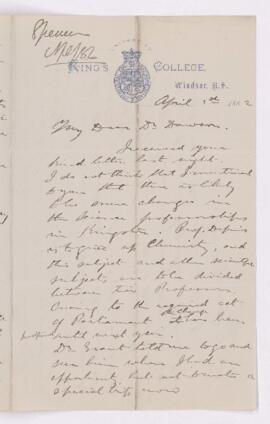 Spencer
KING'S COLLEGE,
Windsor, N.S.
April 3rd 1882
My Dear Dr Dawson.
I received your
kind letter last night.
I do not think that I mentioned
to you that there is likely
to be some changes in
the Science professorships
in Kingston. Prof. Dupuis
is to give up Chemistry, and
this subject and other scientific
subjects are to be divided
between two Professors.
Owing to the required act
of Parliament the change has been
until next year.
Dr Grant told me to go and
see him when I had an
opportunity but not to make a
special trip now